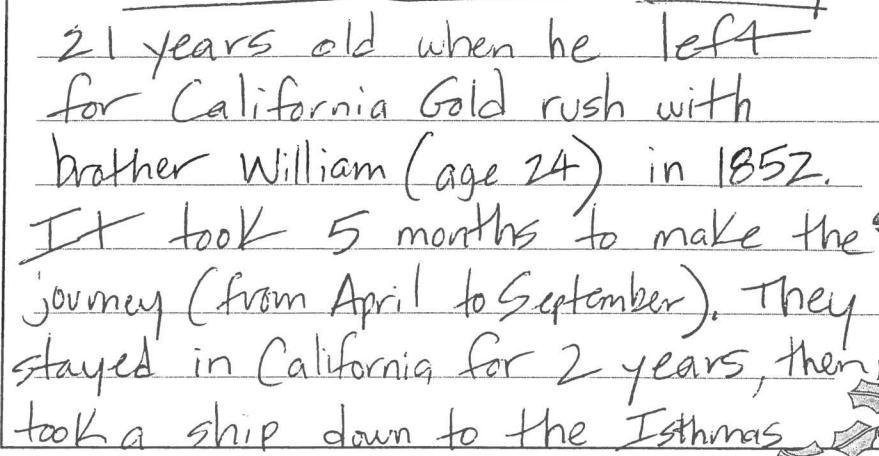 21 years old when he left
for California Gold rush with
brother William (age 24) in 1852.
It took 5 months to make the
journey (from April to September). They
stayed in California for 2 years, then
took a ship down to the Isthmas